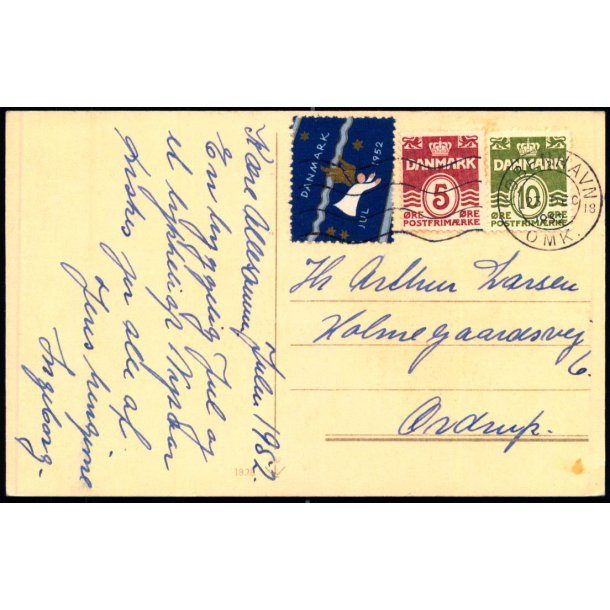 Kære Allesammen, Julen 1952.
En hyggelig Jul og
et lykkeligt Nytaar
ønskes jer alle af
Jeres hengivne
Ingeborg.
DANMARK
JUL
1952
DANMARK
5
ØRE ØRE
POSTFRIMÆRKE
DANMARK
10
ØRE ØRE
POSTFRIMÆRKE
HAVN
OMK.
Hr Arthur Larsen
Holmegaardsvej
6.
Ordrup.